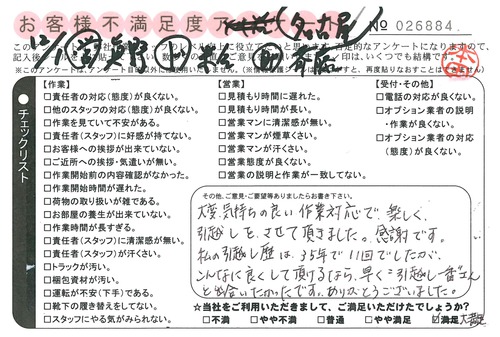 お客様不満足度アンケート
名古屋
No 026884
チェックリスト
【作業】
□責任者の対応(態度)が良くない。
□他のスタッフの対応(態度)が良くない。
□作業を見ていて不安がある。
□責任者(スタッフ)に好感が持てない。
□お客様への挨拶が出来ていない。
□ご近所への挨拶・気遣いが無い。
□作業開始前の内容確認がなかった。
□作業開始時間が遅れた。
□荷物の取り扱いが雑である。
□お部屋の養生が出来ていない。
□作業時間が長すぎる。
□責任者(スタッフ)に清潔感が無い。
□責任者(スタッフ)が汗くさい。
□トラックが汚い。
□梱包資材が汚い。
□運転が不安(下手)である。
□靴下の履き替えをしてない。
□スタッフにやる気がみられない。
【営業】
□見積もり時間に遅れた。
□見積もり時間が長い。
□営業マンに清潔感が無い。
□営業マンが煙草くさい。
□営業マンが汗くさい。
□営業態度が良くない。
□営業の説明と作業が一致してない。
【受付・その他】
□電話の対応が良くない。
□オプション業者の説明
・作業が良くない。
□オプション業者の対応
(態度)が良くない。
その他、ご意見・ご要望等ありましたらお書き下さい。
大変、気持ちの良い作業対応で、楽しく、
引越しをさせて頂きました。感謝です。
私の引越し歴は、35年で11回でしたので、
こんなに良くして頂けるなら、早く引越し一番さん
と出会いたかったです。ありがとうございました。
☆当社をご利用いただきまして、ご満足いただけたでしょうか?
□不満 □やや不満 □普通 □やや満足 ☑満足 大満足